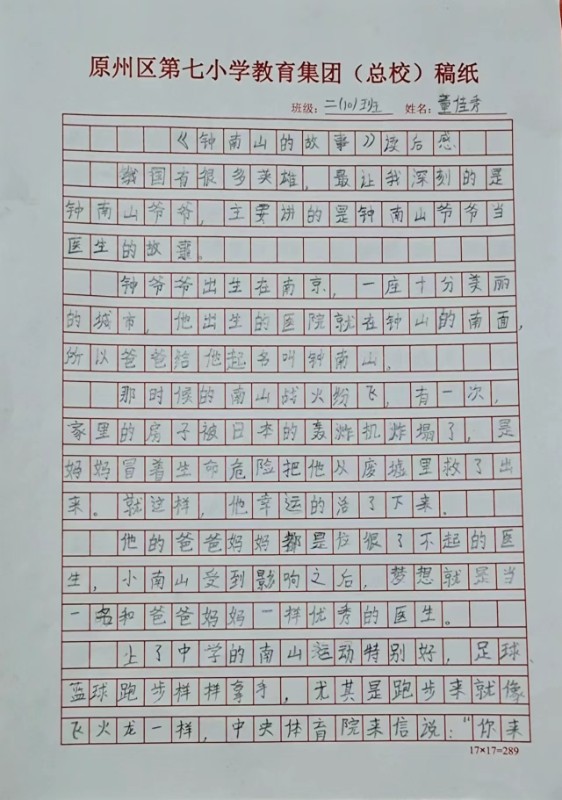 原州区第七小学教育集团（总校）稿纸
班级：二(10)班 姓名：董佳秀
《钟南山的故事》读后感
我国有很多英雄，最让我深刻的是
钟南山爷爷，主要讲的是钟南山爷爷当
医生的故事。
钟爷爷出生在南京，一座十分美丽
的城市，他出生的医院就在钟山的南面，
所以爸爸给他起名叫钟南山。
那时候的南山战火纷飞，有一次，
家里的房子被日本的轰炸机炸塌了，是
妈妈冒着生命危险把他从废墟里救了出
来。就这样，他幸运的活了下来。
他的爸爸妈妈都是位很了不起的医
生，小南山受到影响之后，梦想就是当
一名和爸爸妈妈一样优秀的医生。
上了中学的南山运动特别好，足球
蓝球跑步样样拿手，尤其是跑步来就像
飞火龙一样，中央体育院来信说：“你来
17×17=289